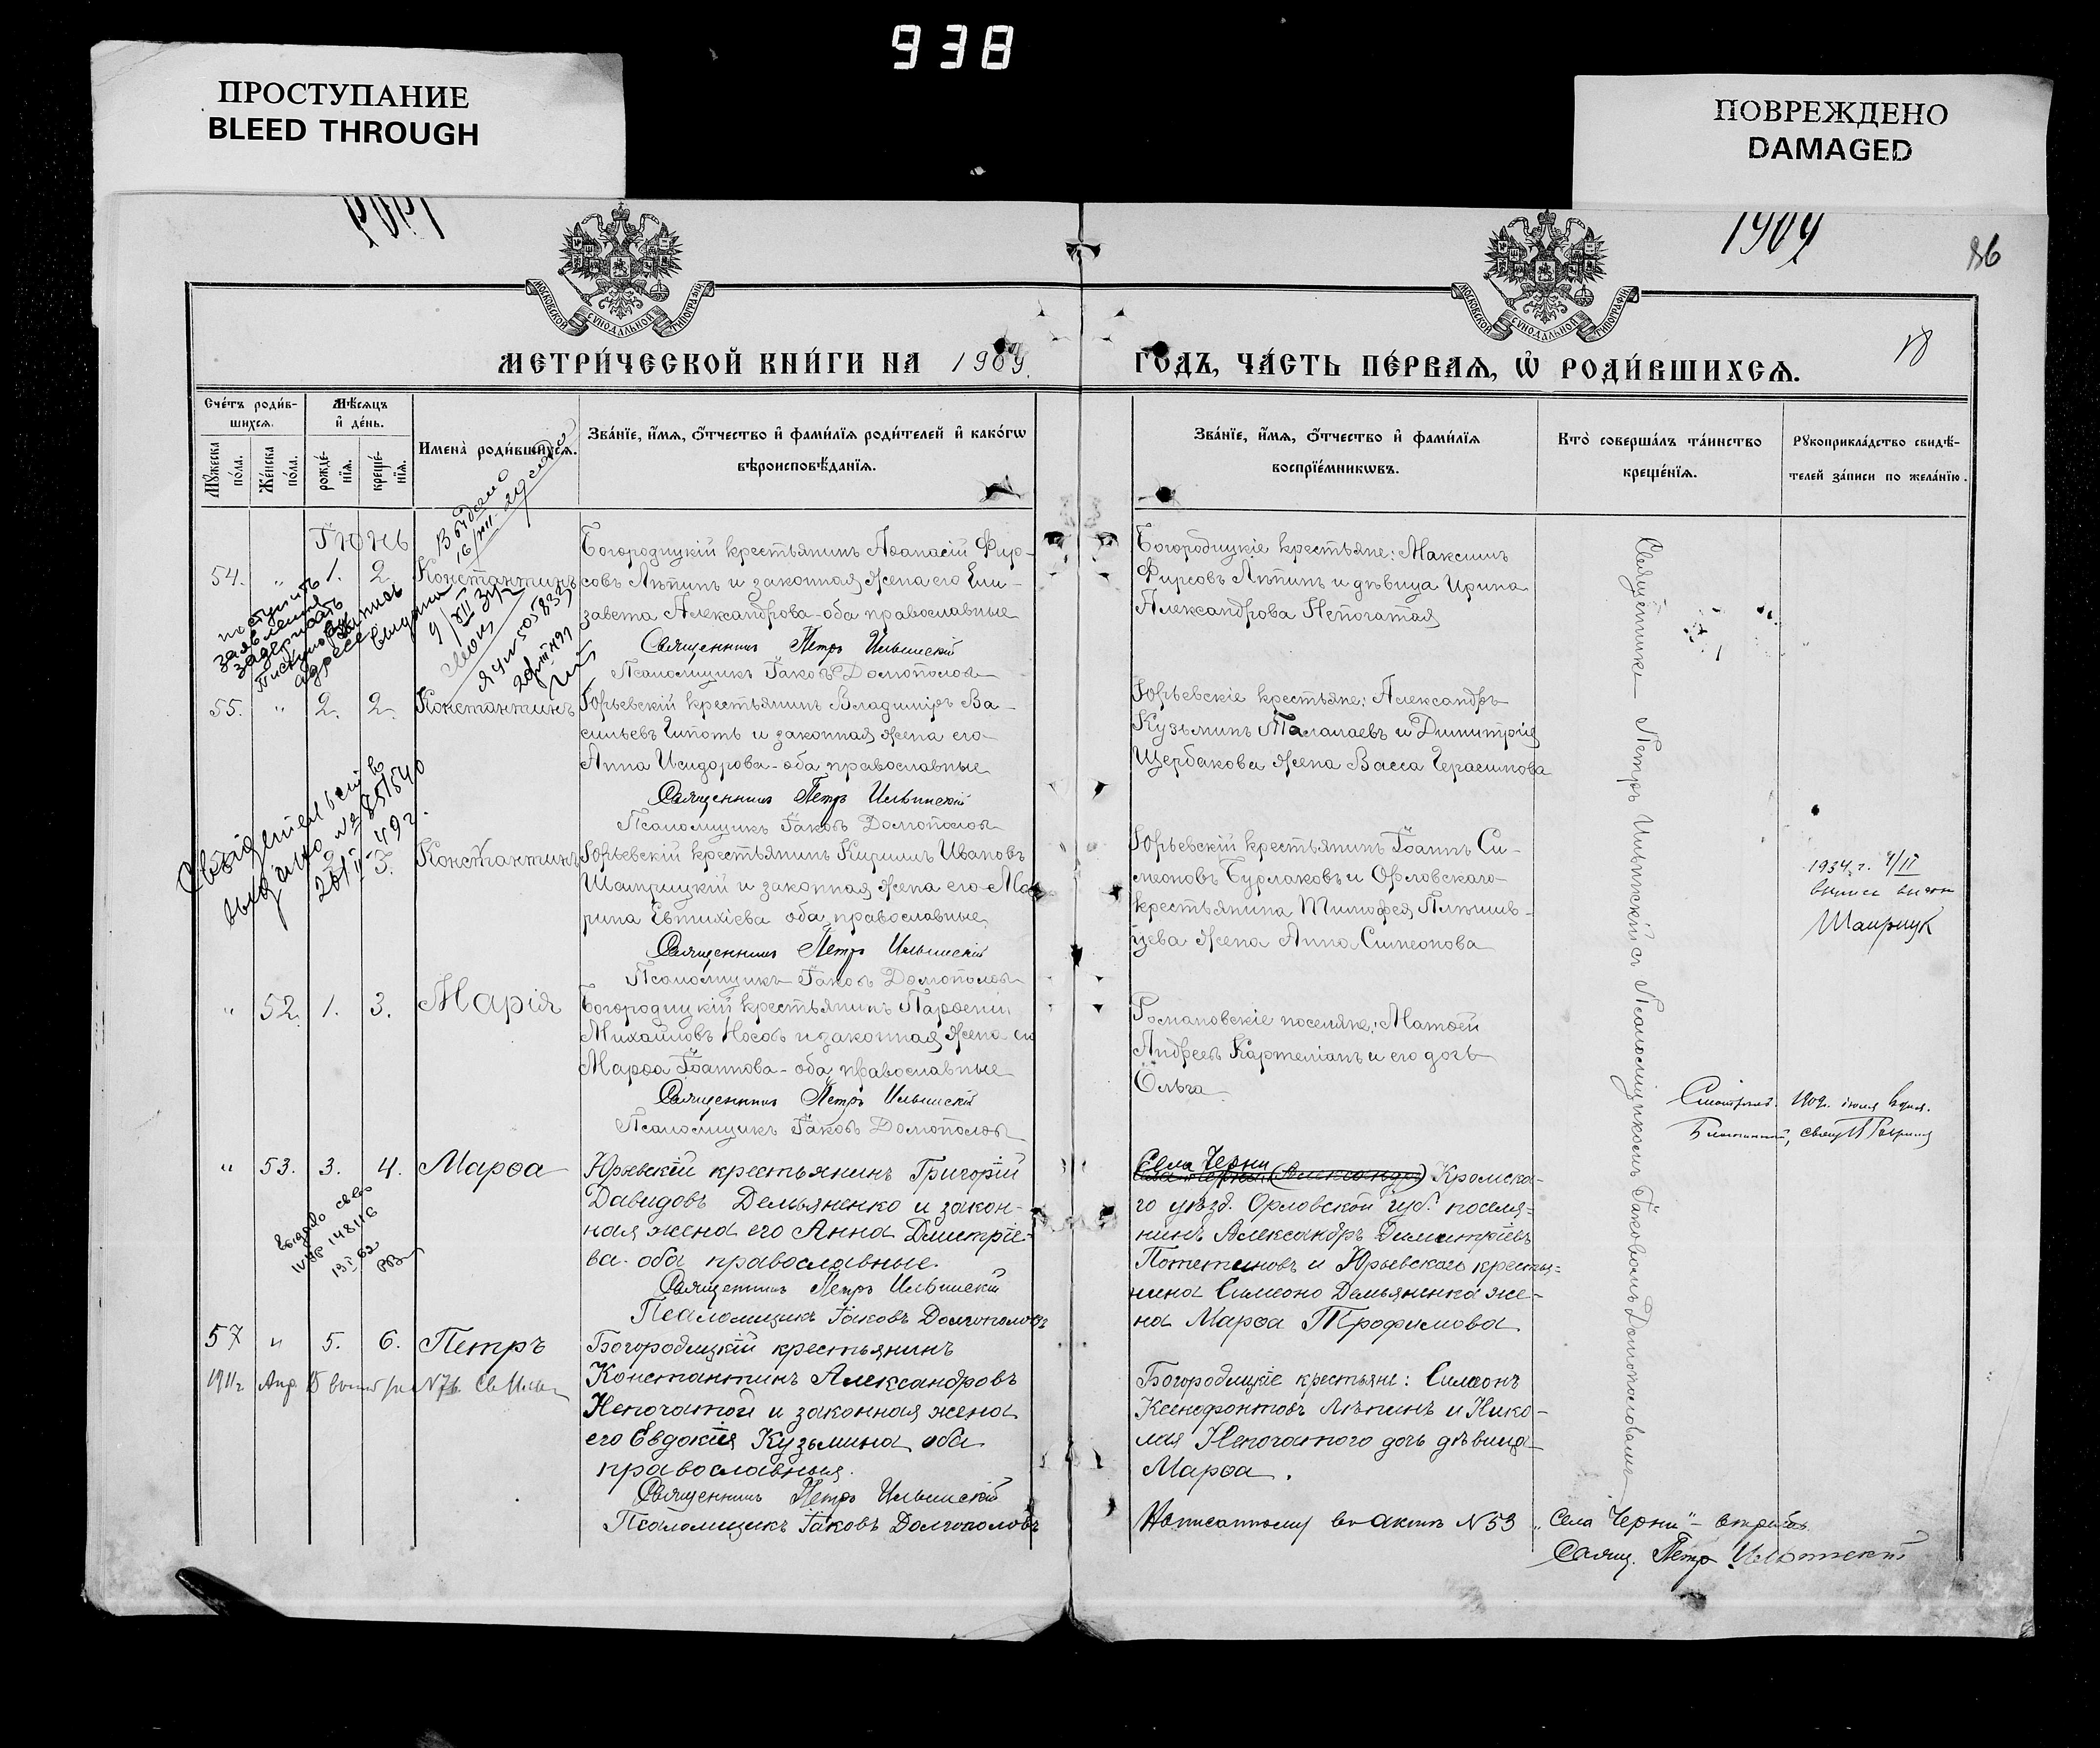 938
ПРОСТУПАНИЕ
BLEED THROUGH
ПОВРЕЖДЕНО
DAMAGED
1909
86
МОСКОВСКОЙ СѴНОДАЛЬНОЙ ТИПОГРАФІИ
МОСКОВСКОЙ СѴНОДАЛЬНОЙ ТИПОГРАФІИ
МЕТРИ́ЧЕСКОЙ КНИ́ГИ НА 1909
ГО́ДЪ, ЧА́СТЬ ПЕ́РВАѦ, Ѡ҆ РОДИ́ВШИХСѦ.
18
Сче́тъ роди́в-
шихсѧ.
Мѣ́сѧцъ
и҆ де́нь.
Мꙋ́жеска
по́ла.
Же́нска
по́ла.
рожде́-
нїѧ.
креще́-
нїѧ.
Имена̀ роди́вшихсѧ.
Зва́нїе, и҆́мѧ, ѻ҆́тчество и҆ фами́лїѧ роди́телей и҆ како́гѡ
вѣроисповѣ́данїѧ.
Зва́нїе, и҆́мѧ, ѻ҆́тчество и҆ фами́лїѧ
воспрїе́мникѡвъ.
Кто̀ соверша́лъ та́инство
креще́нїѧ.
Рꙋкоприкла́дство свидѣ́-
телей за́писи по жела́нїю.
Іюнь
54. " 1. 2. Константинъ
Богородицкій крестьянинъ Аѳанасій Фир-
совъ Лѣпинъ и законная жена его Ели-
завета Александрова - оба православные
Священникъ Петръ Ильинскій
Псаломщикъ Іаковъ Долгополовъ
Богородицкіе крестьяне: Максимъ
Фирсовъ Лѣпинъ и дѣвица Ирина
Александрова Непочатая
Выдано
поступило
заявленіе
55. " 2. 2. Константинъ
Юрьевскій крестьянинъ Владиміръ Ва-
сильевъ Чипотъ и законная жена его
Анна Исидорова - оба православные
Священникъ Петръ Ильинскій
Псаломщикъ Іаковъ Долгополовъ
Юрьевскіе крестьяне: Александръ
Кузьминъ Малалаевъ и Димитрія
Щербакова жена Васса Герасимова
Свидетельство
выдано № 851540
Константинъ
Юрьевскій крестьянинъ Кириллъ Ивановъ
Шаприцкій и законная жена его Ма-
рина Евтихіева оба православные
Священникъ Петръ Ильинскій
Псаломщикъ Іаковъ Долгополовъ
Юрьевскій крестьянинъ Іоаннъ Си-
меоновъ Бурлаковъ и Орловскаго
крестьянина Тимофея
жена Анна Симеонова
1934 г.
" 52. 1. 3. Марія
Богородицкій крестьянинъ Парѳеній
Михайловъ Носовъ и законная жена его
Марѳа Іоаннова - оба православные
Священникъ Петръ Ильинскій
Псаломщикъ Іаковъ Долгополовъ
Романовскіе поселяне: Матѳей
Андреевъ Картеліанъ и его дочь
Ольга
" 53. 3. 4. Марѳа
Юрьевскій крестьянинъ Григорій
Давидовъ Демьяненко и закон-
ная жена его Анна Димитріе-
ва - оба православные.
Священникъ Петръ Ильинскій
Псаломщикъ Іаковъ Долгополовъ
Села Черни Кромска-
го уѣзд. Орловской губ. поселя-
нинъ Александръ Димитріевъ
Потетиновъ и Юрьевскаго крестья-
нина Симеона Демьяненка же-
на Марѳа Трофимова
57 " 5. 6. Петръ
Богородицкій крестьянинъ
Константинъ Александровъ
Непочатой и законная жена
его Евдокія Кузьмина оба
православныя.
Священникъ Петръ Ильинскій
Псаломщикъ Іаковъ Долгополовъ
Богородицкіе крестьяне: Симеонъ
Ксенофонтовъ Лѣпинъ и Нико-
лая Непочатого дочь дѣвица
Марѳа.
Священникъ Петръ Ильинскій съ Псаломщикомъ Іаковомъ Долгополовымъ
Написанному въ актѣ N 53 „Села Черни" - вѣрить
Свящ. Петръ Ильинскій